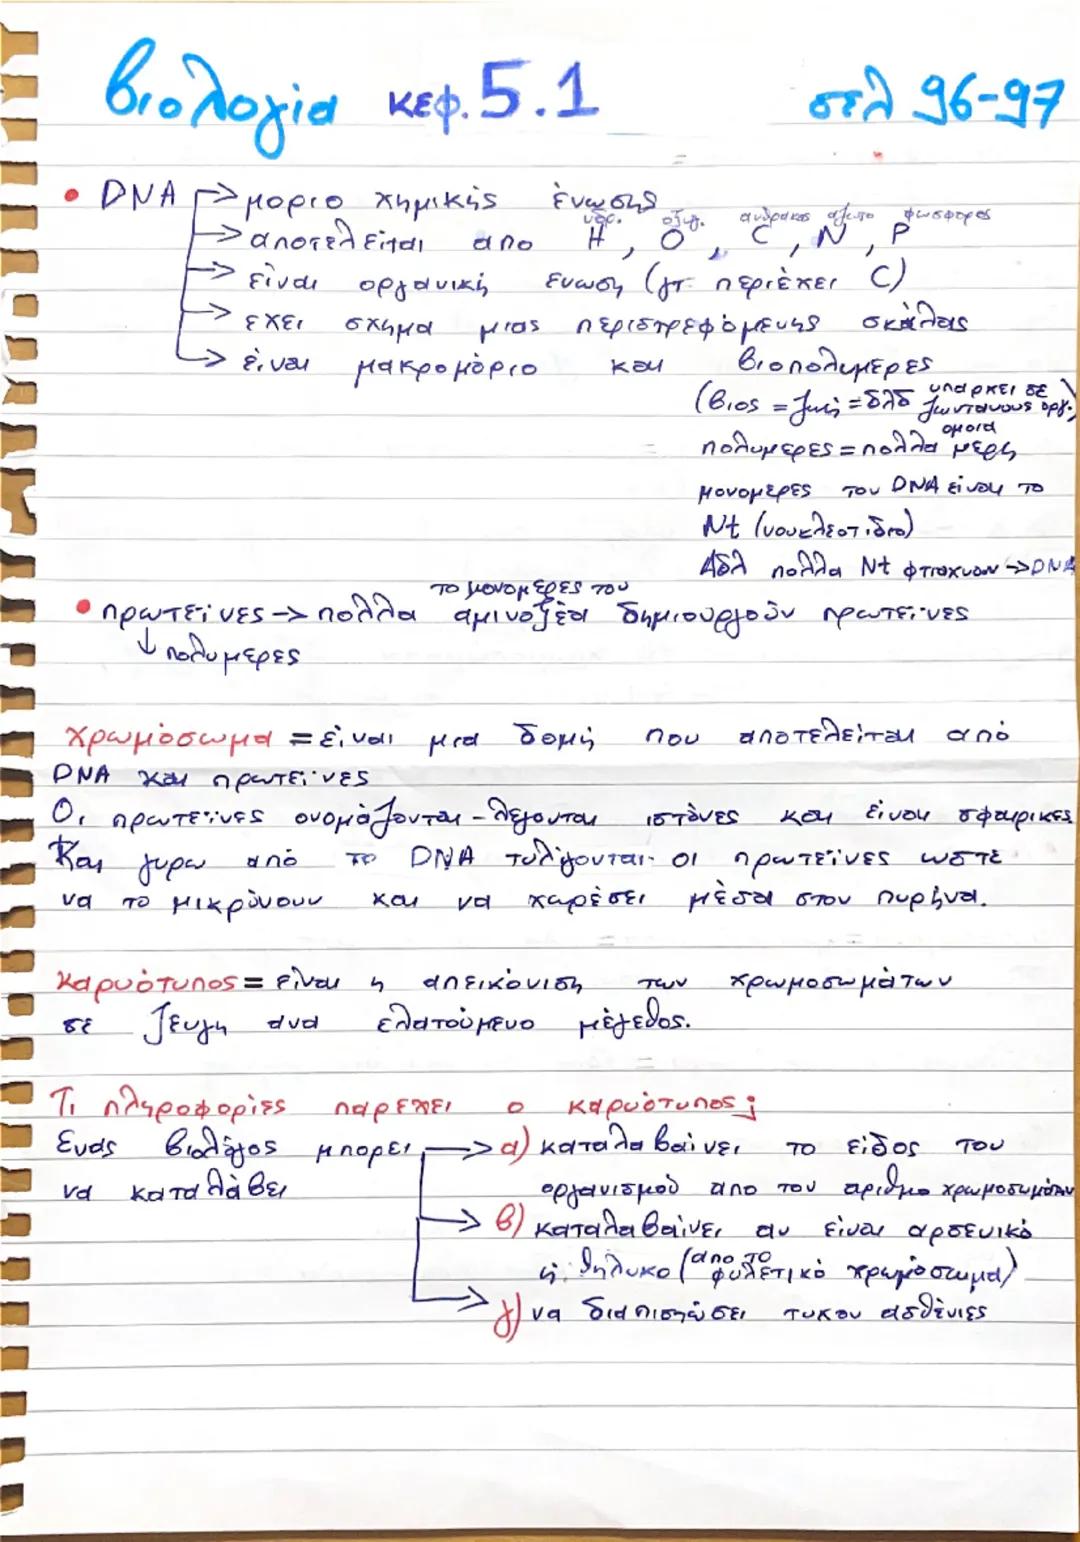 βιολογία κεφ. 5.1 σελ 96-97
• DNA → μοριο χημικής ένωσης
υδρ. οξυγ. ανθρακας αζωτο φωσφορος
→ αποτελείται απο H, O, C, N, P
→ είναι οργανική ενωση (γτ περιέχει C)
→ εχει σχημα μιας περιστρεφόμενης σκάλας
→ είναι μακρομόριο και βιοπολυμερες
(βιος = ζωή = δλδ υπαρχει σε ζωντανους οργ.)
πολυμερες = πολλα ομοια μερη
μονομερες του DNA είναι το
Nt (νουκλεοτιδιο)
Δδλ πολλα Nt φτιαχνουν → DNA
το μονομερες του
• πρωτείνες → πολλα αμινοξέα δημιουργούν πρωτείνες
↓ πολυμερες
χρωμόσωμα = είναι μια δομή που αποτελείται από
DNA και πρωτείνες
Οι πρωτείνες ονομάζονται - λέγονται ιστόνες και είναι σφαιρικες
Και γυρω από το DNA τυλίγονται οι πρωτείνες ωστε
να το μικρύνουν και να χωρέσει μέσα στον πυρήνα.
καρυότυπος = είναι η απεικόνιση των χρωμοσωμάτων
σε ζευγη ανα ελατούμενο μέγεθος.
Τι πληροφορίες παρεχει ο καρυότυπος;
Ενας βιολόγος μπορει → α) καταλαβαίνει το είδος του
να καταλάβει οργανισμού απο τον αριθμο χρωμοσωμάτων
→ β) καταλαβαίνει αν είναι αρσενικό
ή θήλυκο (απο το φυλετικό χρωμόσωμα)
→ γ) να διαπιστώσει τυχον ασθένιες